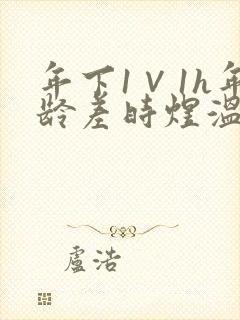 年下1V1h年
龄差时煜温
盧浩